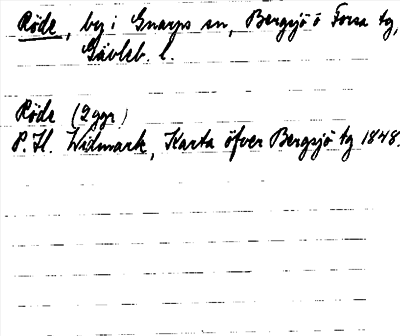 Röde, by i Gnarps sn, Bergsjö o Forsa tg,
Gävleb. l.
Röde (2 ggr)
P. H. Widmark, Karta öfver Bergsjö tg 1848.